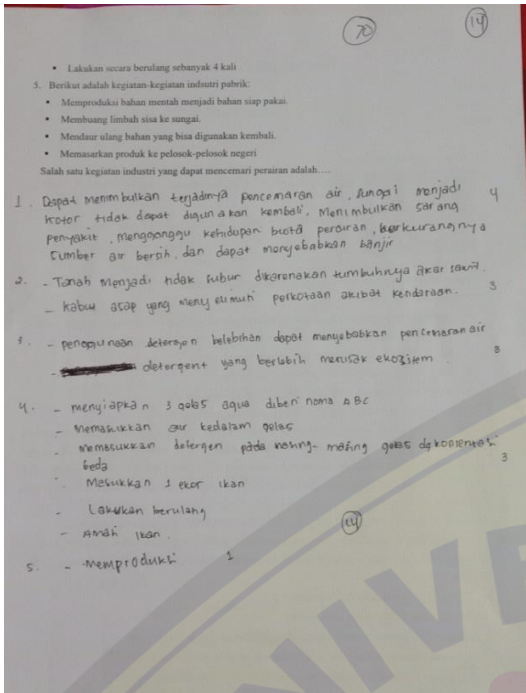 70
14
• Lakukan secara berulang sebanyak 4 kali
5. Berikut adalah kegiatan-kegiatan indsutri pabrik:
• Memproduksi bahan mentah menjadi bahan siap pakai.
• Membuang limbah sisa ke sungai.
• Mendaur ulang bahan yang bisa digunakan kembali.
• Memasarkan produk ke pelosok-pelosok negeri
Salah satu kegiatan industri yang dapat mencemari perairan adalah….
1. Dapat menimbulkan terjadinya pencemaran air, sungai menjadi 4
kotor tidak dapat digunakan kembali, menimbulkan sarang
penyakit, mengganggu kehidupan biota perairan, berkurangnya
sumber air bersih, dan dapat menyebabkan banjir
2. - Tanah menjadi tidak subur dikarenakan tumbuhnya akar sawit.
- kabut asap yang menyelimuti perkotaan akibat kendaraan. 3
3. - penggunaan detergen belebihan dapat menyebabkan pencemaran air
- detergent yang berlebih merusak ekozitem. 3
4. - menyiapkan 3 gelas aqua diberi nama ABC
- Memasukkan air kedalam gelas
- Memasukkan detergen pada masing-masing gelas dg konsentrasi
beda 3
Masukkan 1 ekor ikan
- Lakukan berulang
- Amati ikan.
14
5. - Memproduksi 1
UNIVE